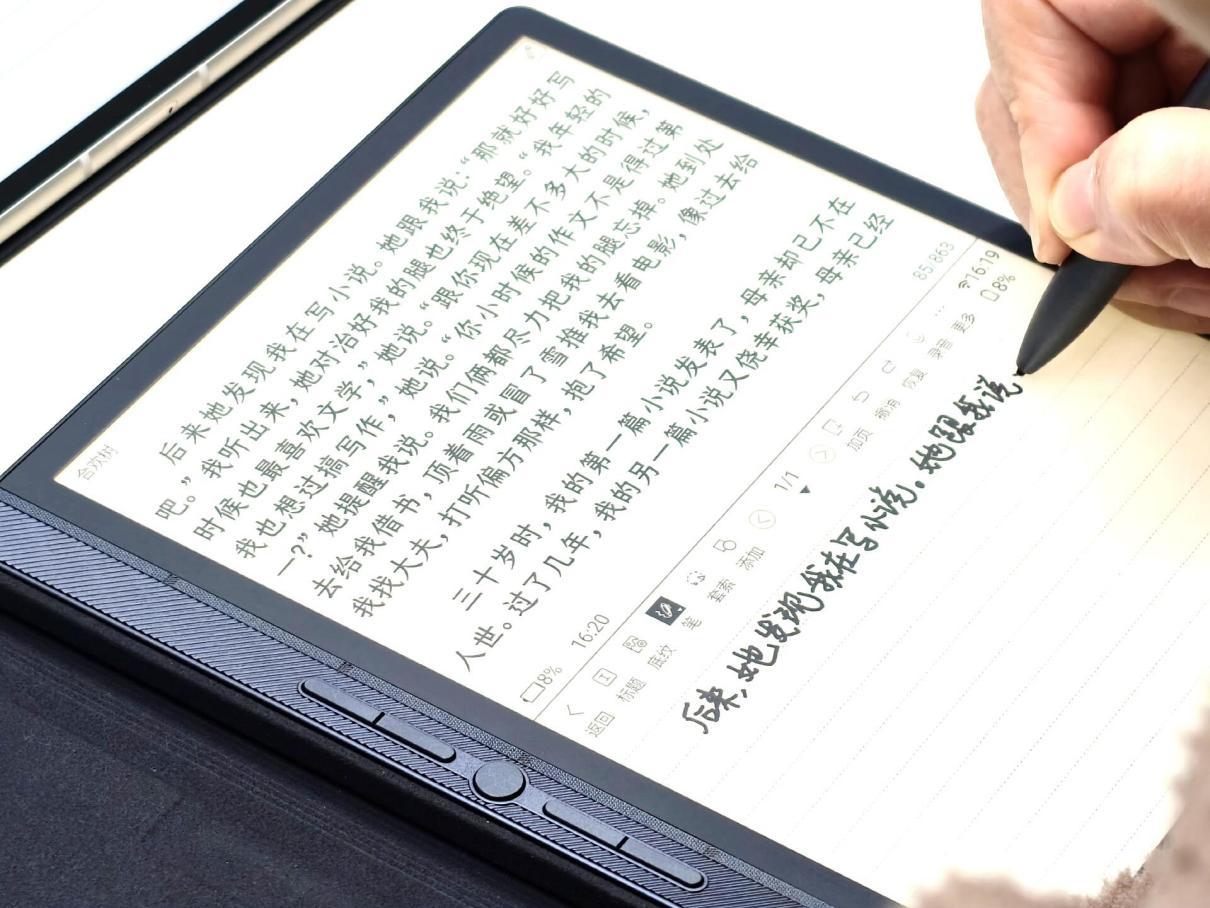 合欢树
后来她发现我在写小说。她跟我说：“那就好好写
吧。”我听出来，她对治好我的腿也终于绝望。“我年轻的
时候也最喜欢文学，”她说。“跟你现在差不多大的时候，
我也想过搞写作，”她说。“你小时候的作文不是得过第
一?”她提醒我说。我们俩都尽力把我的腿忘掉。她到处
去给我借书，顶着雨或冒了雪推我去看电影，像过去给
我找大夫，打听偏方那样，抱了希望。
三十岁时，我的第一篇小说发表了，母亲却已不在
人世。过了几年，我的另一篇小说又侥幸获奖，母亲已经
8% 16:20
85/863
16:19
8%
返回 标题 底纹 笔 套索 添加 1/1 加页 撤消 恢复 录音 更多
后来，她发现我在写小说。她跟我说